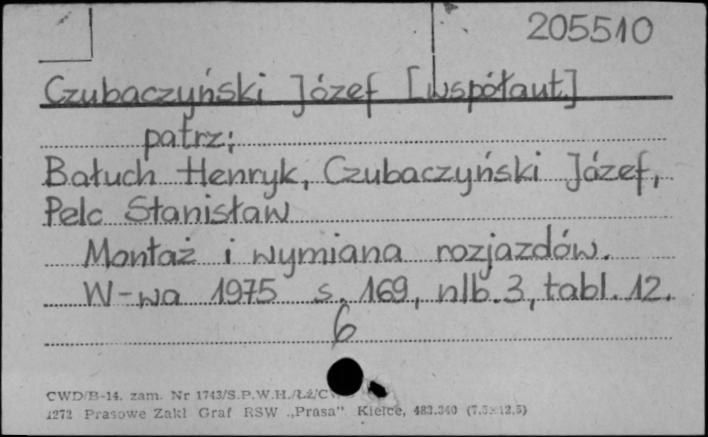 205510
Czubaczyński Józef [współaut.]
patrz:
Bałuch Henryk, Czubaczyński Józef,
Pelc Stanisław
Montaż i wymiana rozjazdów.
W-wa 1975 s. 169, nlb. 3, tabl. 12.
6
CWD/B-14. zam. Nr 1743/S.P.W.H./Łż/
1272 Prasowe Zakl Graf RSW „Prasa" Kielce, 483.340 (7.5×12.5)